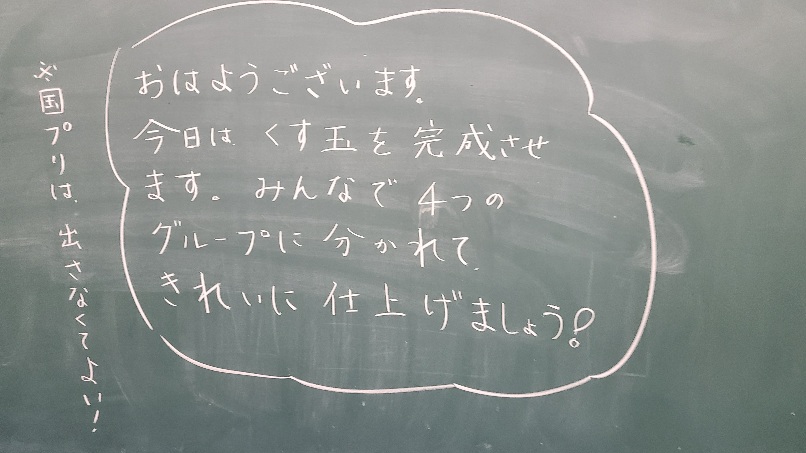 おはようございます。
今日は、くす玉を完成させ
ます。みんなで4つの
グループに分かれて、
きれいに仕上げましょう!
※国プリは、出さなくてよい!